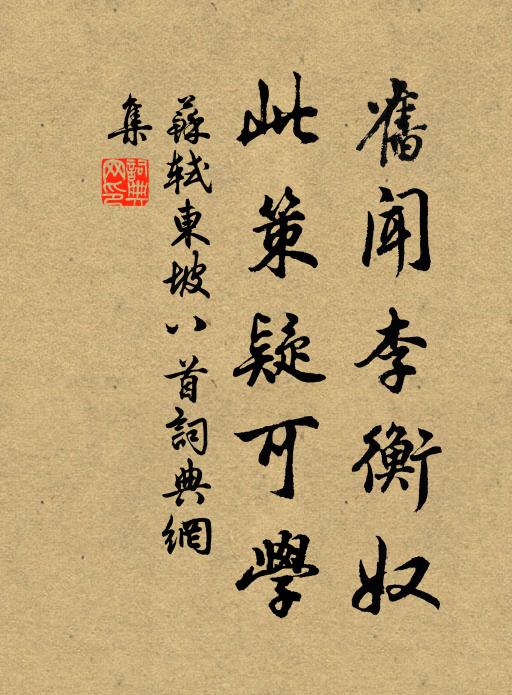 舊聞李衡奴
此策疑可學
蘇軾東坡八首詞典網
集
詞典
网印